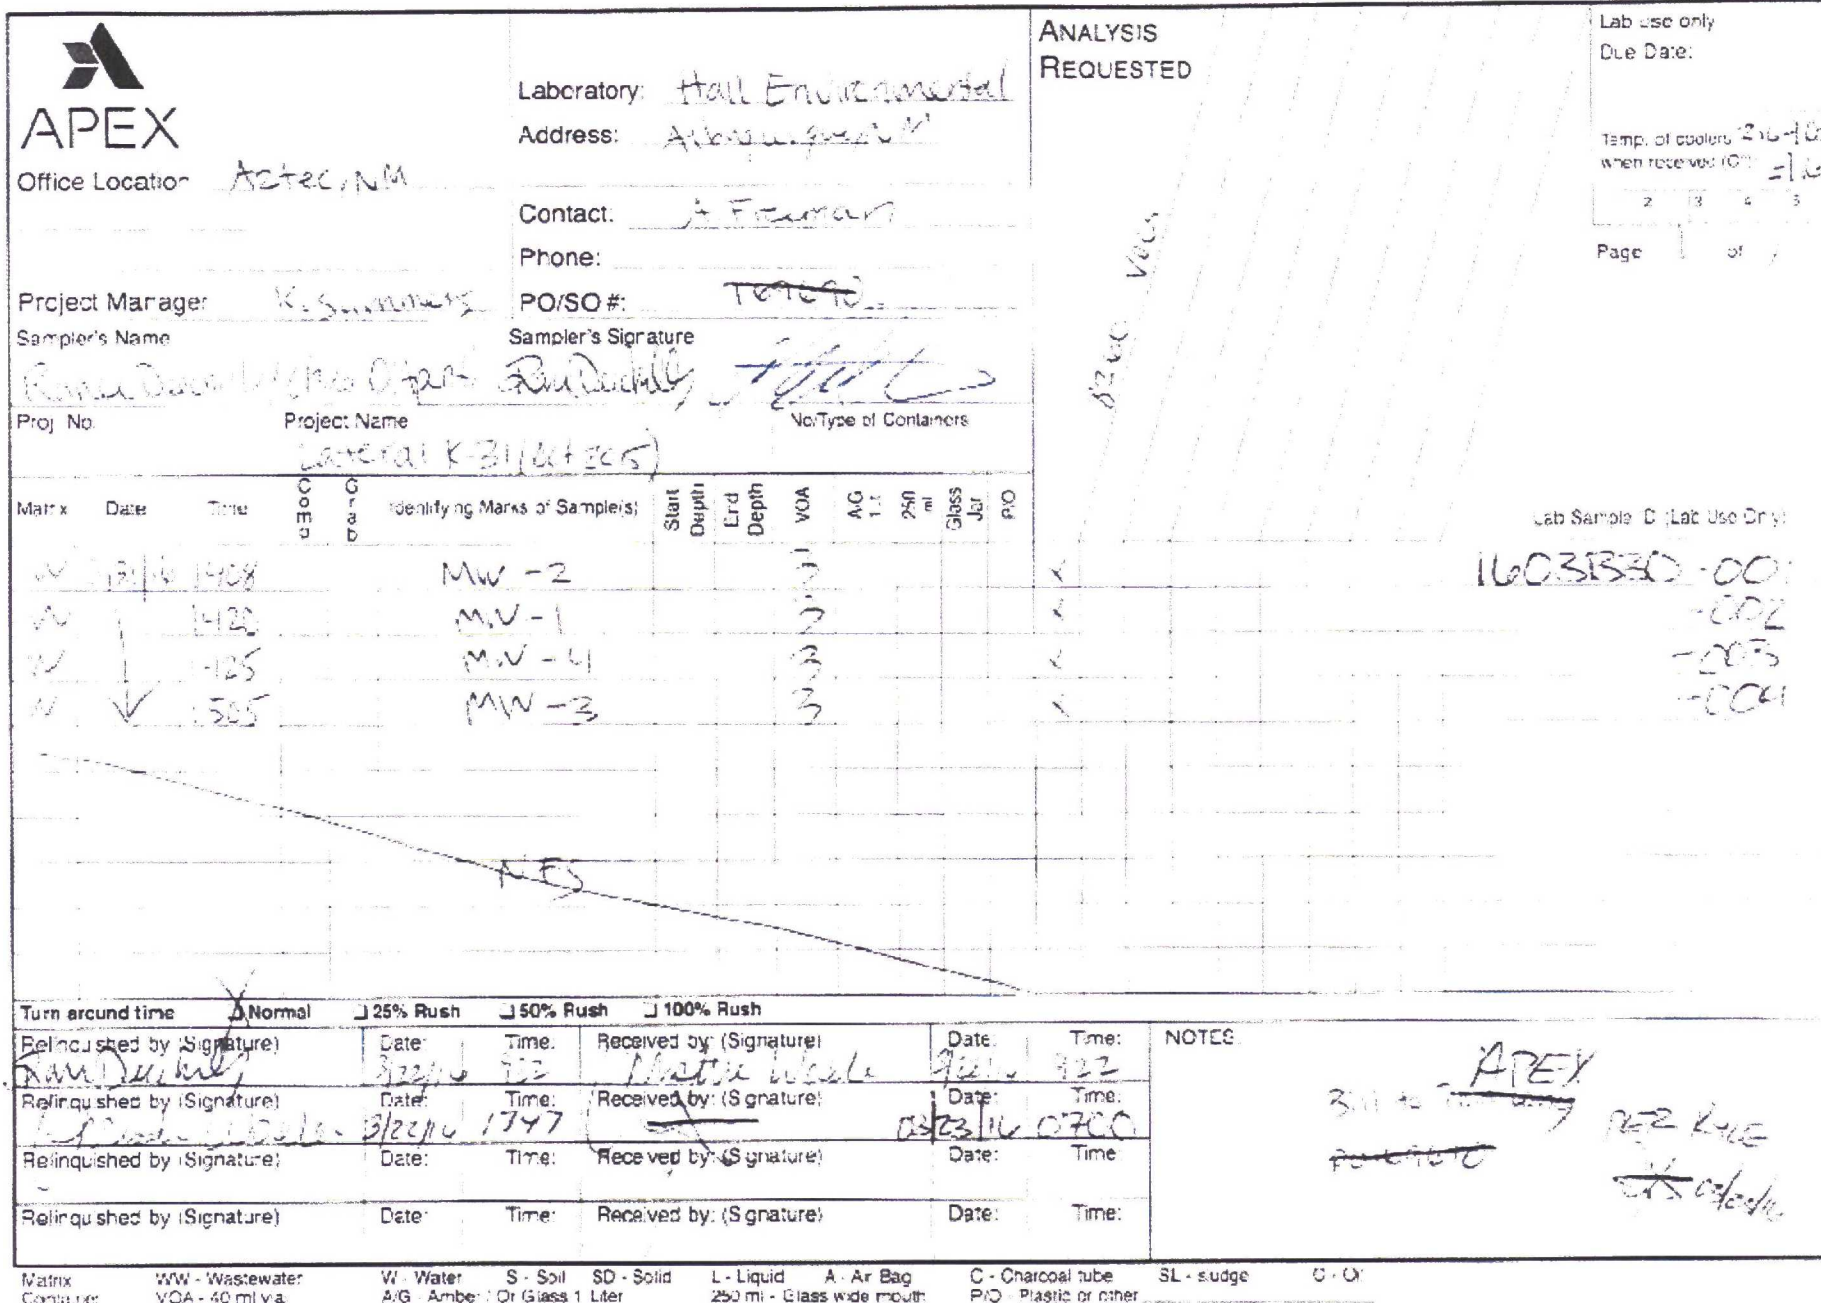 APEX
Office Location Aztec, NM
Project Manager K. Summers
Laboratory: Hall Environmental
Address: Albuquerque NM
Contact: A. Freeman
Phone:
PO/SO #:
ANALYSIS
REQUESTED
8260 VOCs
Lab use only
Due Date:
Temp. of coolers
when received (C°):
2 3 4 5
Page 1 of
Sampler's Name
Sampler's Signature
Proj. No. Project Name No/Type of Containers
Lateral K-31
Matrix Date Time Comp Grab Identifying Marks of Sample(s) Start Depth End Depth VOA A/G 1 Lt 250 ml Glass Jar P/O
Lab Sample ID (Lab Use Only)
W 1408 MW-2 3 X 1603B30-001
W 1420 MW-1 3 X -002
W 1425 MW-4 3 X -003
W 1505 MW-3 3 X -004
NFS
Turn around time X Normal 25% Rush 50% Rush 100% Rush
Relinquished by (Signature) Date: Time: Received by: (Signature) Date: Time:
3/22/16 922 922
Relinquished by (Signature) Date: Time: Received by: (Signature) Date: Time:
3/22/16 1747 03/23/16 0700
Relinquished by (Signature) Date: Time: Received by: (Signature) Date: Time:
Relinquished by (Signature) Date: Time: Received by: (Signature) Date: Time:
NOTES:
APEX
Bill to
PER KYLE
Matrix WW - Wastewater W - Water S - Soil SD - Solid L - Liquid A - Air Bag C - Charcoal tube SL - sludge O - Oil
Container VOA - 40 ml vial A/G - Amber / Or Glass 1 Liter 250 ml - Glass wide mouth P/O - Plastic or other